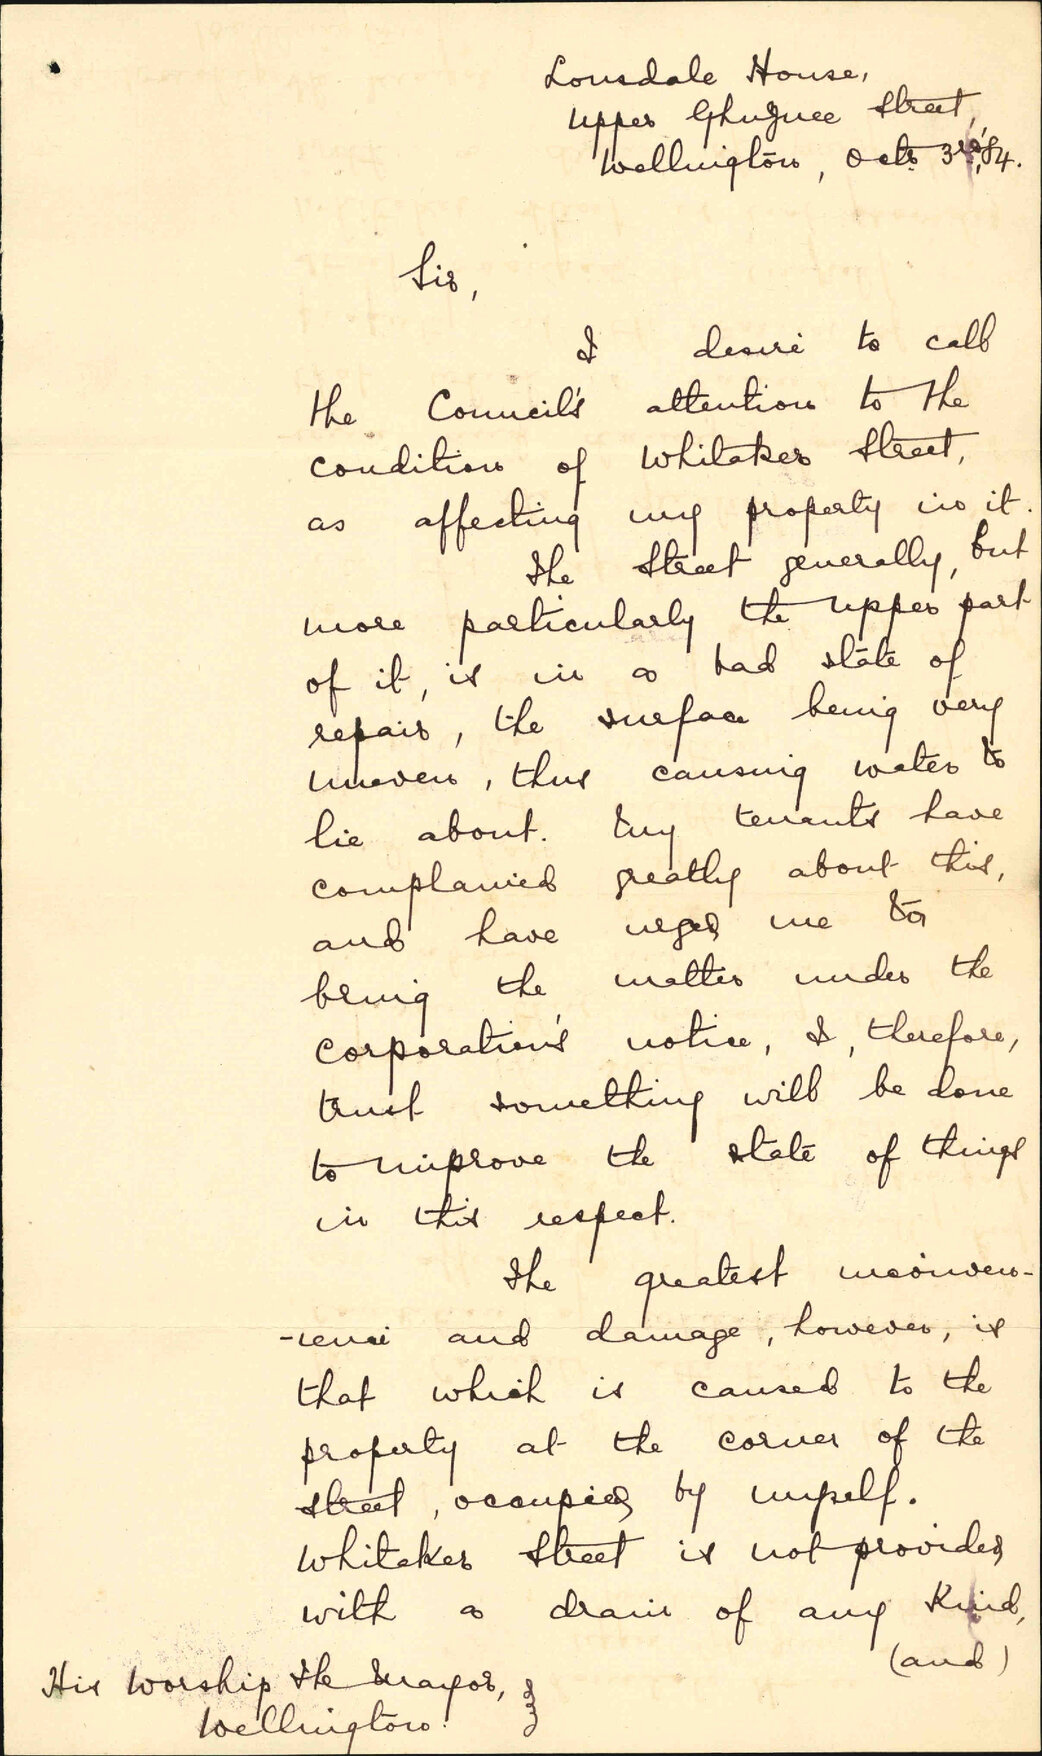 Lonsdale House,
Upper Ghuznee Street,
Wellington, Octr. 3rd, '84.
Sir,
I desire to call
the Council's attention to the
condition of Whitaker Street,
as affecting my property in it.
The Street generally, but
more particularly the upper part
of it, is in a bad state of
repair, the surface being very
uneven, thus causing water to
lie about. My tenants have
complained greatly about this,
and have urged me to
bring the matter under the
Corporation's notice, I, therefore,
trust something will be done
to improve the state of things
in this respect.
The greatest inconven-
-ience and damage, however, is
that which is caused to the
property at the corner of the
street, occupied by myself.
Whitaker Street is not provided
with a drain of any kind,
(and)
His Worship The Mayor,
Wellington.